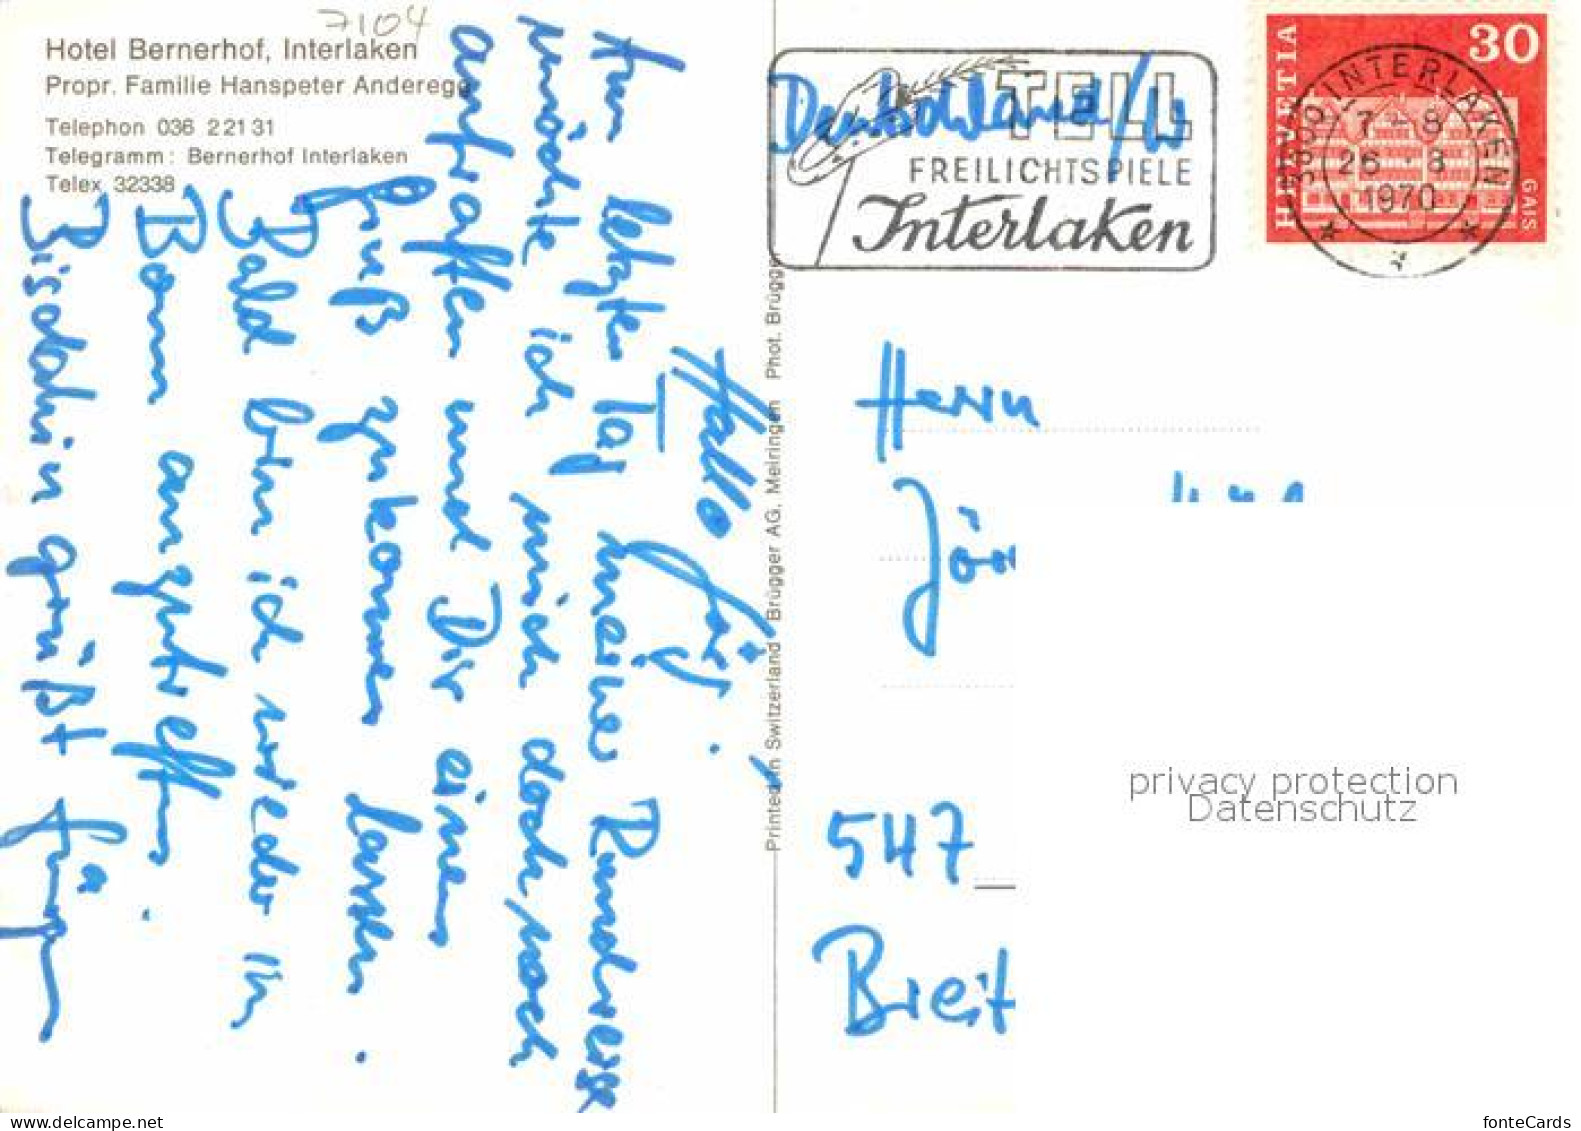 7104
Hotel Bernerhof, Interlaken
Propr. Familie Hanspeter Anderegg
Telephon 036 2 21 31
Telegramm: Bernerhof Interlaken
Telex 32338
Hallo Jörg!
Am letzten Tag meiner Rundreise
möchte ich mich doch noch
aufraffen und Dir einen
Gruß zukommen lassen.
Bald bin ich wieder in
Bonn anzutreffen.
Bis dahin grüßt
Printed in Switzerland Brügger AG, Meiringen Phot. Brügger
Deutschland/W
TELL
FREILICHTSPIELE
Interlaken
HELVETIA
30
GAIS
3800 INTERLAKEN
7-8
26.8
1970
Herrn
Jö
547
Breit
privacy protection
Datenschutz
www.delcampe.net
fonteCards